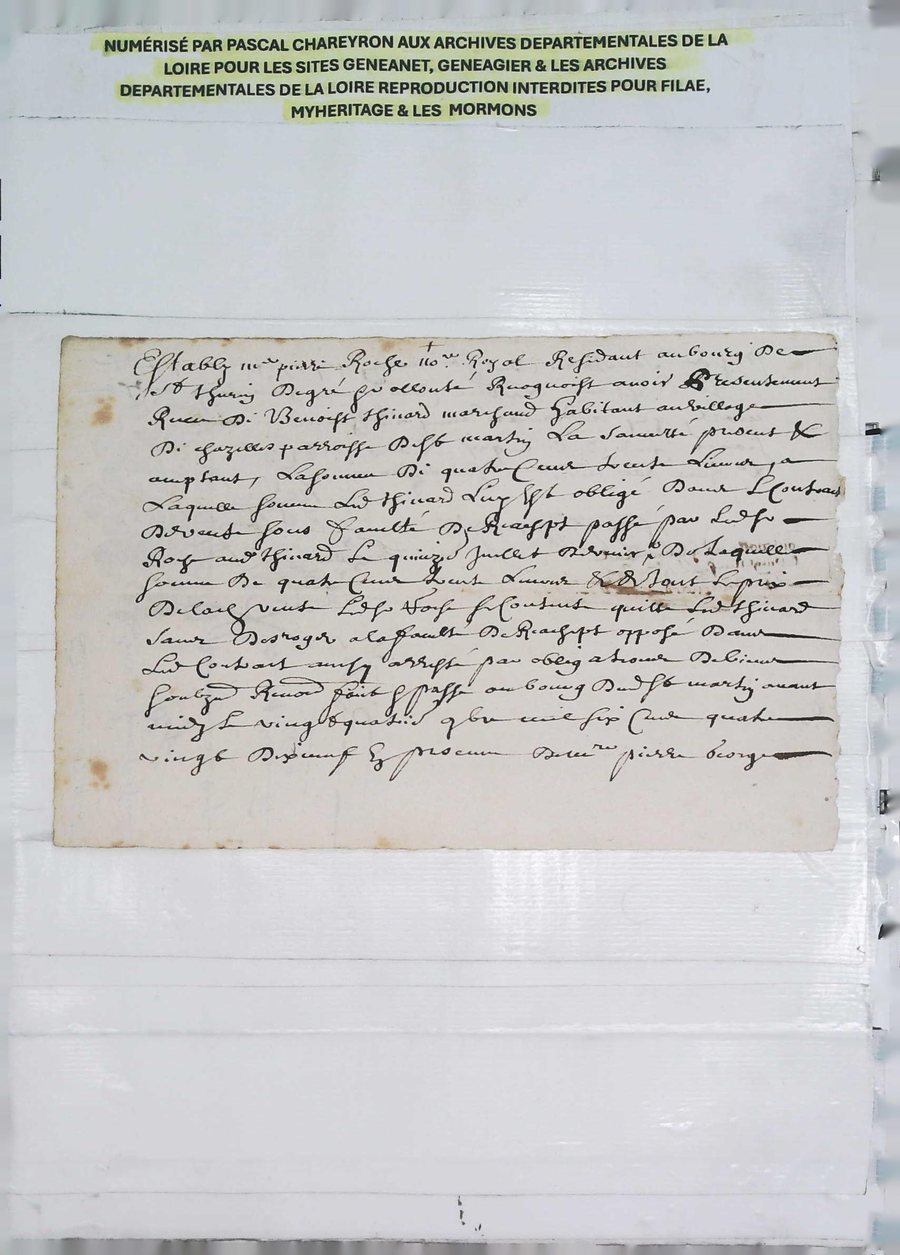 NUMÉRISÉ PAR PASCAL CHAREYRON AUX ARCHIVES DEPARTEMENTALES DE LA
LOIRE POUR LES SITES GENEANET, GENEAGIER & LES ARCHIVES
DEPARTEMENTALES DE LA LOIRE REPRODUCTION INTERDITES POUR FILAE,
MYHERITAGE & LES MORMONS
Estably me pierre Roche nore Royal Residant au bourg de
St thurin de gré & vollonté Recognoist avoir presentement
Receu de Benoist thinard marchand habitant au village
de chazelles parroisse de St martin La sauveté present &
acceptant, La somme de quatre Cens trente Livres, a
Laquelle somme Led thinard Luy est obligé dans Le Contract
de vente sous faculté de Reachept passé par Led sr
Roche aud thinard Le quinze Juillet dernier de Laquelle
somme de quatre Cens trente Livres Le prix
de lad vente Led sr Roche se Contente quitte Led thinard
sans desroger a la faculté de Reachept opposé dans
Led Contract par obligations de biens
soubzon Renon fait & passé au bourg dud St martin avant
midy Le vingt quatre 9bre mil six Cens quatre
vingt dix neuf En presence de me pierre george